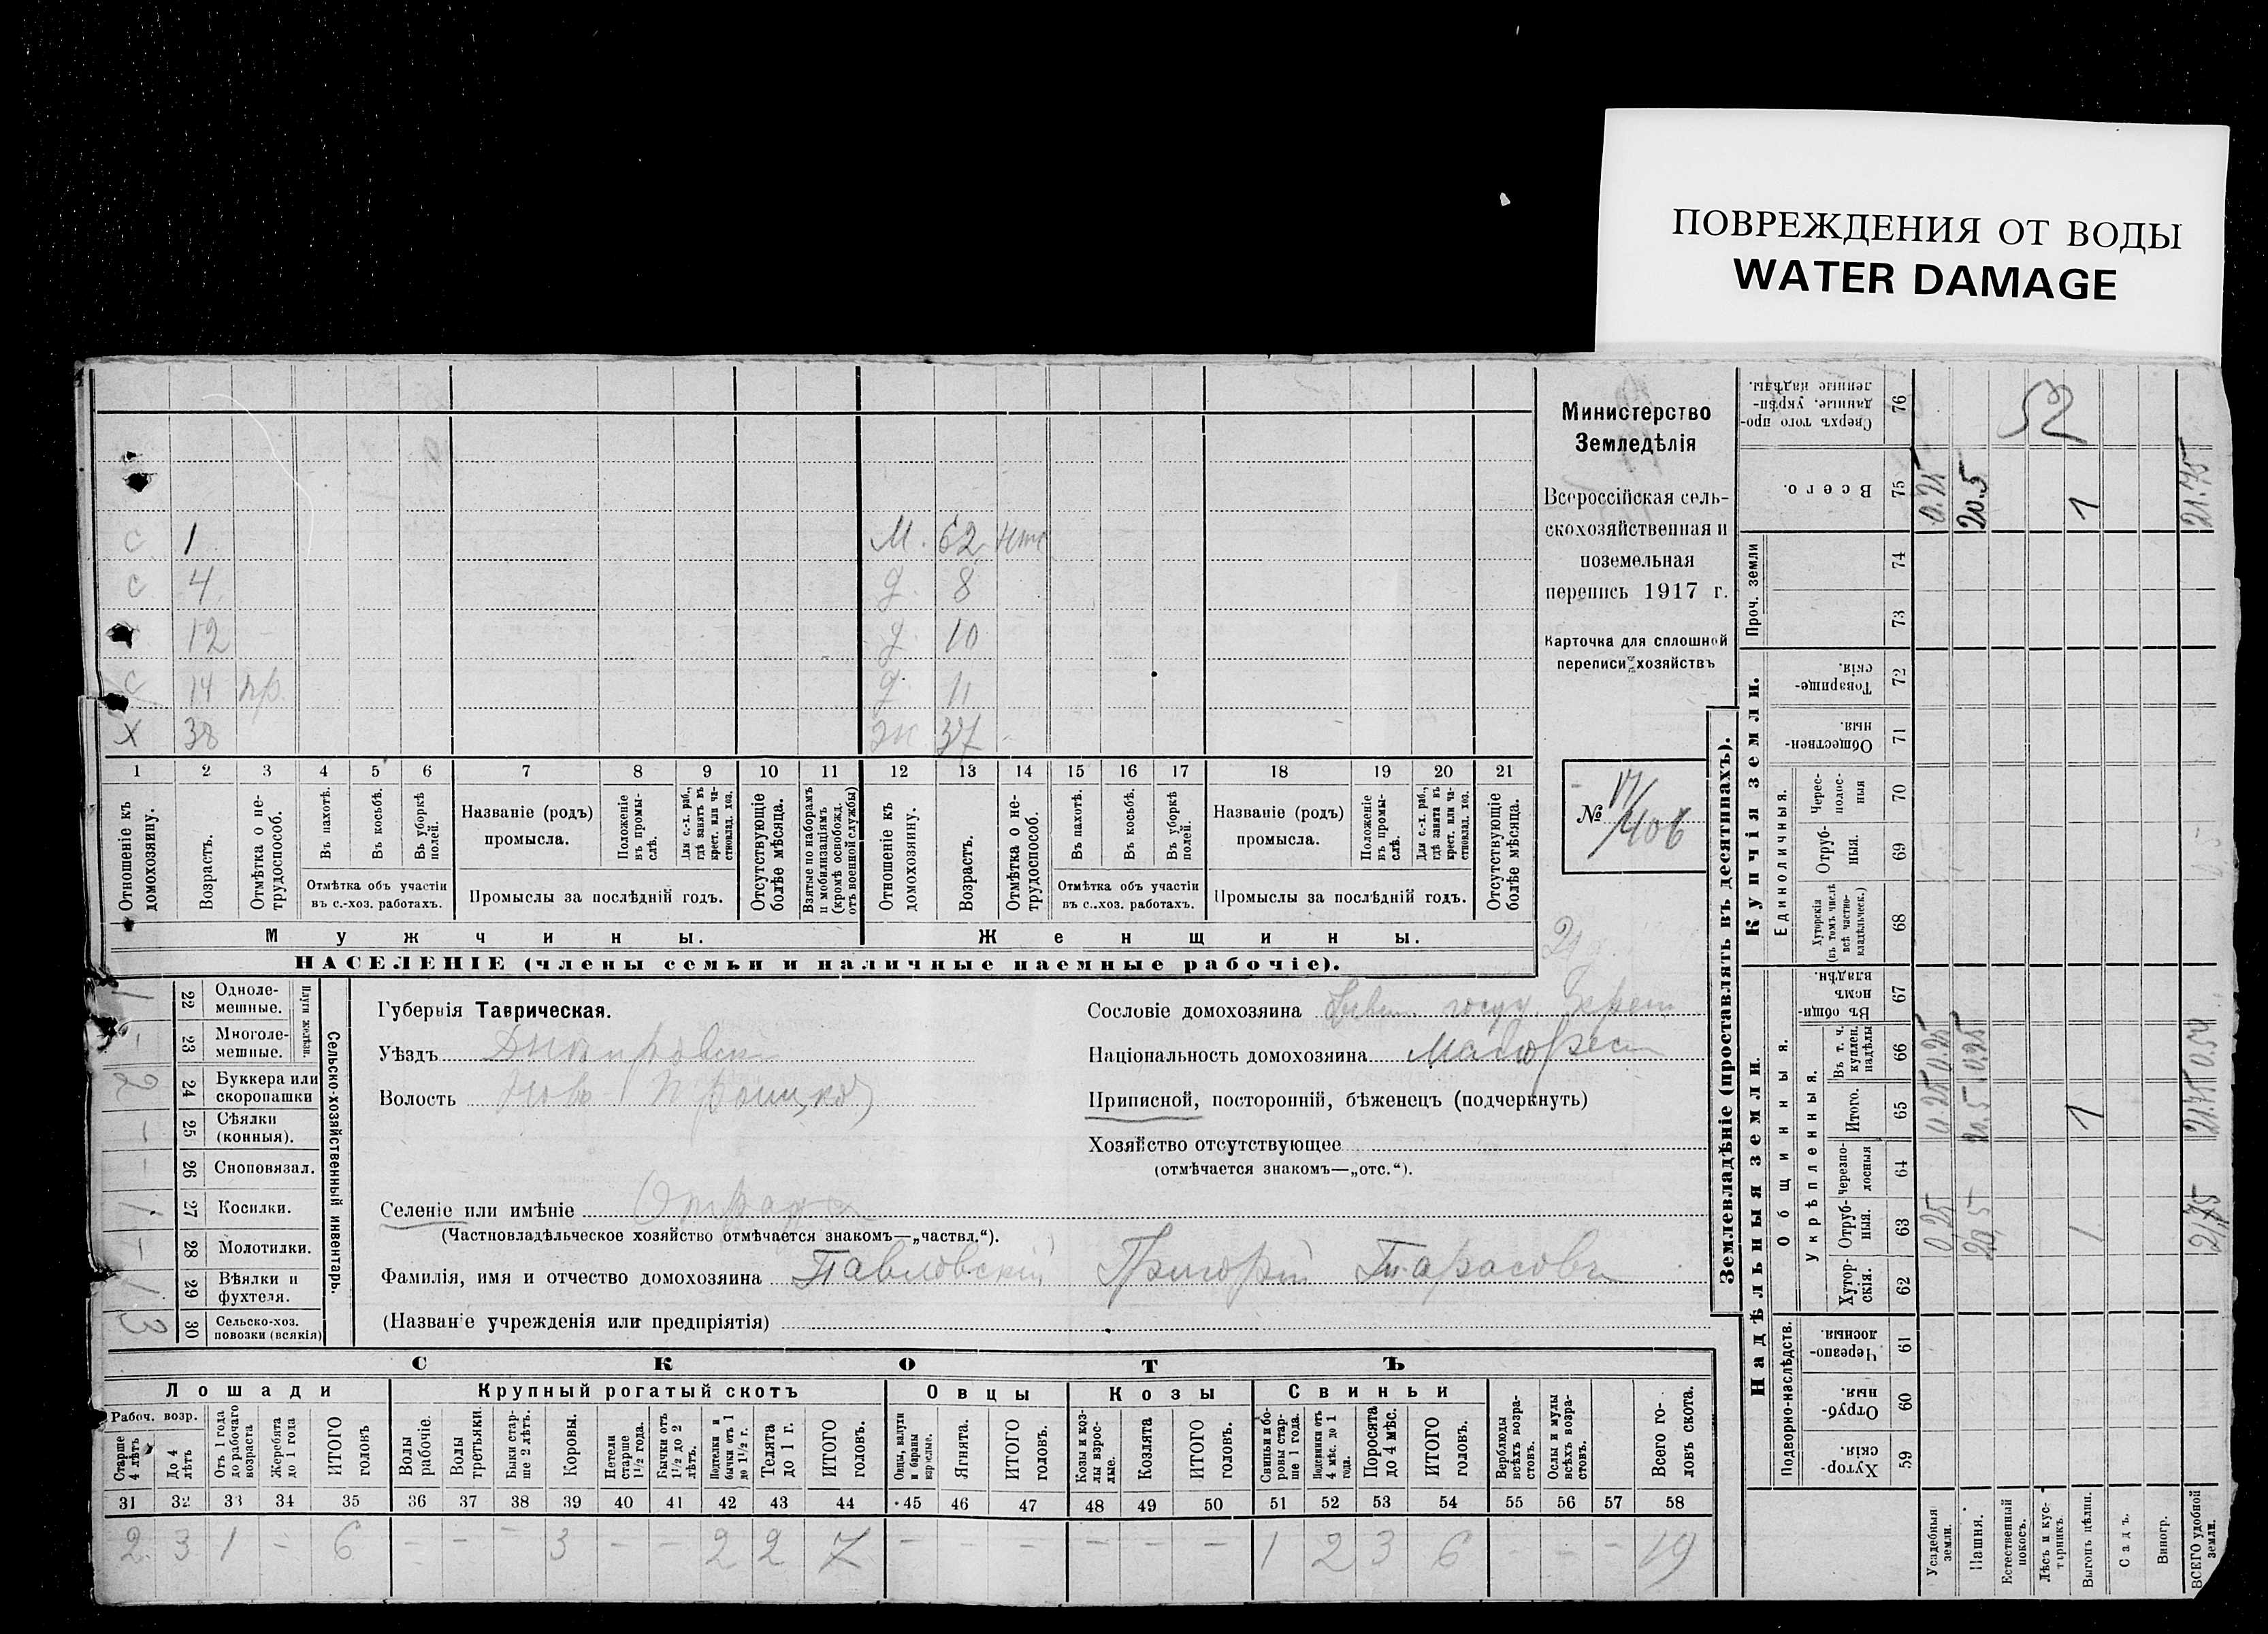 ПОВРЕЖДЕНИЯ ОТ ВОДЫ
WATER DAMAGE
Министерство
Земледѣлія
Всероссійская сель-
скохозяйственная и
поземельная
перепись 1917 г.
Карточка для сплошной
переписи хозяйствъ
№ 17/406
С 1 М. 62
С 4 д. 8
12 д. 10
С 14 пр. д. 11
X 38 37
1 2 3 4 5 6 7 8 9 10 11 12 13 14 15 16 17 18 19 20 21
Отношеніе къ домохозяину.
Возрастъ.
Отмѣтка о не-трудоспособ.
Въ пахотѣ.
Въ косьбѣ.
Въ уборкѣ полей.
Отмѣтка объ участіи
въ с.-хоз. работахъ.
Названіе (родъ)
промысла.
Положеніе въ промы-слѣ.
Для с.-х. раб., гдѣ занятъ въ крест. или ча-стновлад. хоз.
Промыслы за послѣдній годъ.
Отсутствующіе болѣе мѣсяца.
Взятые по наборамъ и мобилизаціямъ (кромѣ освобожд. отъ военной службы)
Отношеніе къ домохозяину.
Возрастъ.
Отмѣтка о не-трудоспособ.
Въ пахотѣ.
Въ косьбѣ.
Въ уборкѣ полей.
Отмѣтка объ участіи
въ с.-хоз. работахъ.
Названіе (родъ)
промысла.
Положеніе въ промы-слѣ.
Для с.-х. раб., гдѣ занята въ крест. или ча-стновлад. хоз.
Промыслы за послѣдній годъ.
Отсутствующіе болѣе мѣсяца.
Мужчины.
Женщины.
НАСЕЛЕНІЕ (члены семьи и наличные наемные рабочіе).
Сельско-хозяйственный инвентарь.
Плуги желѣзн.
1 22 Одноле-мешные.
- 23 Многоле-мешные.
2 24 Буккера или скоропашки
- 25 Сѣялки (конныя).
- 26 Сноповязал.
1 27 Косилки.
- 28 Молотилки.
1 29 Вѣялки и фухтеля.
3 30 Сельско-хоз. повозки (всякія)
Губернія Таврическая.
Уѣздъ Днѣпровскій
Волость Ново Троицкая
Селеніе или имѣніе Отрада
(Частновладѣльческое хозяйство отмѣчается знакомъ—„частвл.“).
Фамилія, имя и отчество домохозяина Павловскій Григорій Тарасовъ
(Названіе учрежденія или предпріятія)
Сословіе домохозяина Бывш. госуд. крест
Національность домохозяина Малорос
Приписной, посторонній, бѣженецъ (подчеркнуть)
Хозяйство отсутствующее
(отмѣчается знакомъ—„отс.“).
СКОТЪ
Лошади
Крупный рогатый скотъ
Овцы
Козы
Свиньи
Рабоч. возр.
Старше 4 лѣтъ
До 4 лѣтъ
Отъ 1 года до рабочаго возраста
Жеребята до 1 года
ИТОГО головъ
Волы рабочіе.
Волы третьяки.
Быки стар-ше 2 лѣтъ.
Коровы.
Нетели старше 1½ года.
Бычки отъ 1½ до 2 лѣтъ.
Подтелки и бычки отъ 1 до 1½ г.
Телята до 1 г.
ИТОГО головъ.
Овцы, валухи и бараны взрослые.
Ягнята.
ИТОГО головъ.
Козы и коз-лы взрос-лые.
Козлята
ИТОГО головъ.
Свиньи и бо-ровы стар-ше 1 года.
Подсвинки отъ 4 мѣс. до 1 года.
Поросята до 4 мѣс.
ИТОГО головъ.
Верблюды всѣхъ возра-стовъ.
Ослы и мулы всѣхъ возра-стовъ.
Всего го-ловъ скота.
31 32 33 34 35 36 37 38 39 40 41 42 43 44 45 46 47 48 49 50 51 52 53 54 55 56 57 58
2 3 1 - 6 - - - 3 - - 2 2 7 - - - - - - 1 2 3 6 - - - 19
Землевладѣніе (проставлять въ десятинахъ).
Надѣльныя земли.
Купчія земли.
Проч. земли
Подворно-наслѣдств.
Общинныя.
Укрѣпленныя.
Единоличныя.
Хутор-скія. 59
Отруб-ныя. 60
Черезпо-лосныя 61
Хутор-скія. 62
Отруб-ныя. 63
Черезпо-лосныя 64
Итого. 65
Въ т. ч. куплен. надѣлы 66
Въ общин-номъ владѣн. 67
Хуторскія (въ томъ числѣ всѣ частно-владѣльческ.) 68
Отруб-ныя. 69
Черес-полос-ныя 70
Обществен-ныя 71
Товарище-скія. 72
73
74
Всего. 75
Сверхъ того про-данные, укрѣп-ленные надѣлы. 76
Усадебныя земли. 0,25 0.25 0.25 0.25
Пашня. 20,5 20.5 0.25 20.5
Естественный покосъ.
Лѣсъ и кус-тарникъ.
Выгонъ цѣлин. 1 1 1
Садъ.
Виногр.
ВСЕГО удобной земли. 21,75 21.75 0.54 21.75
52